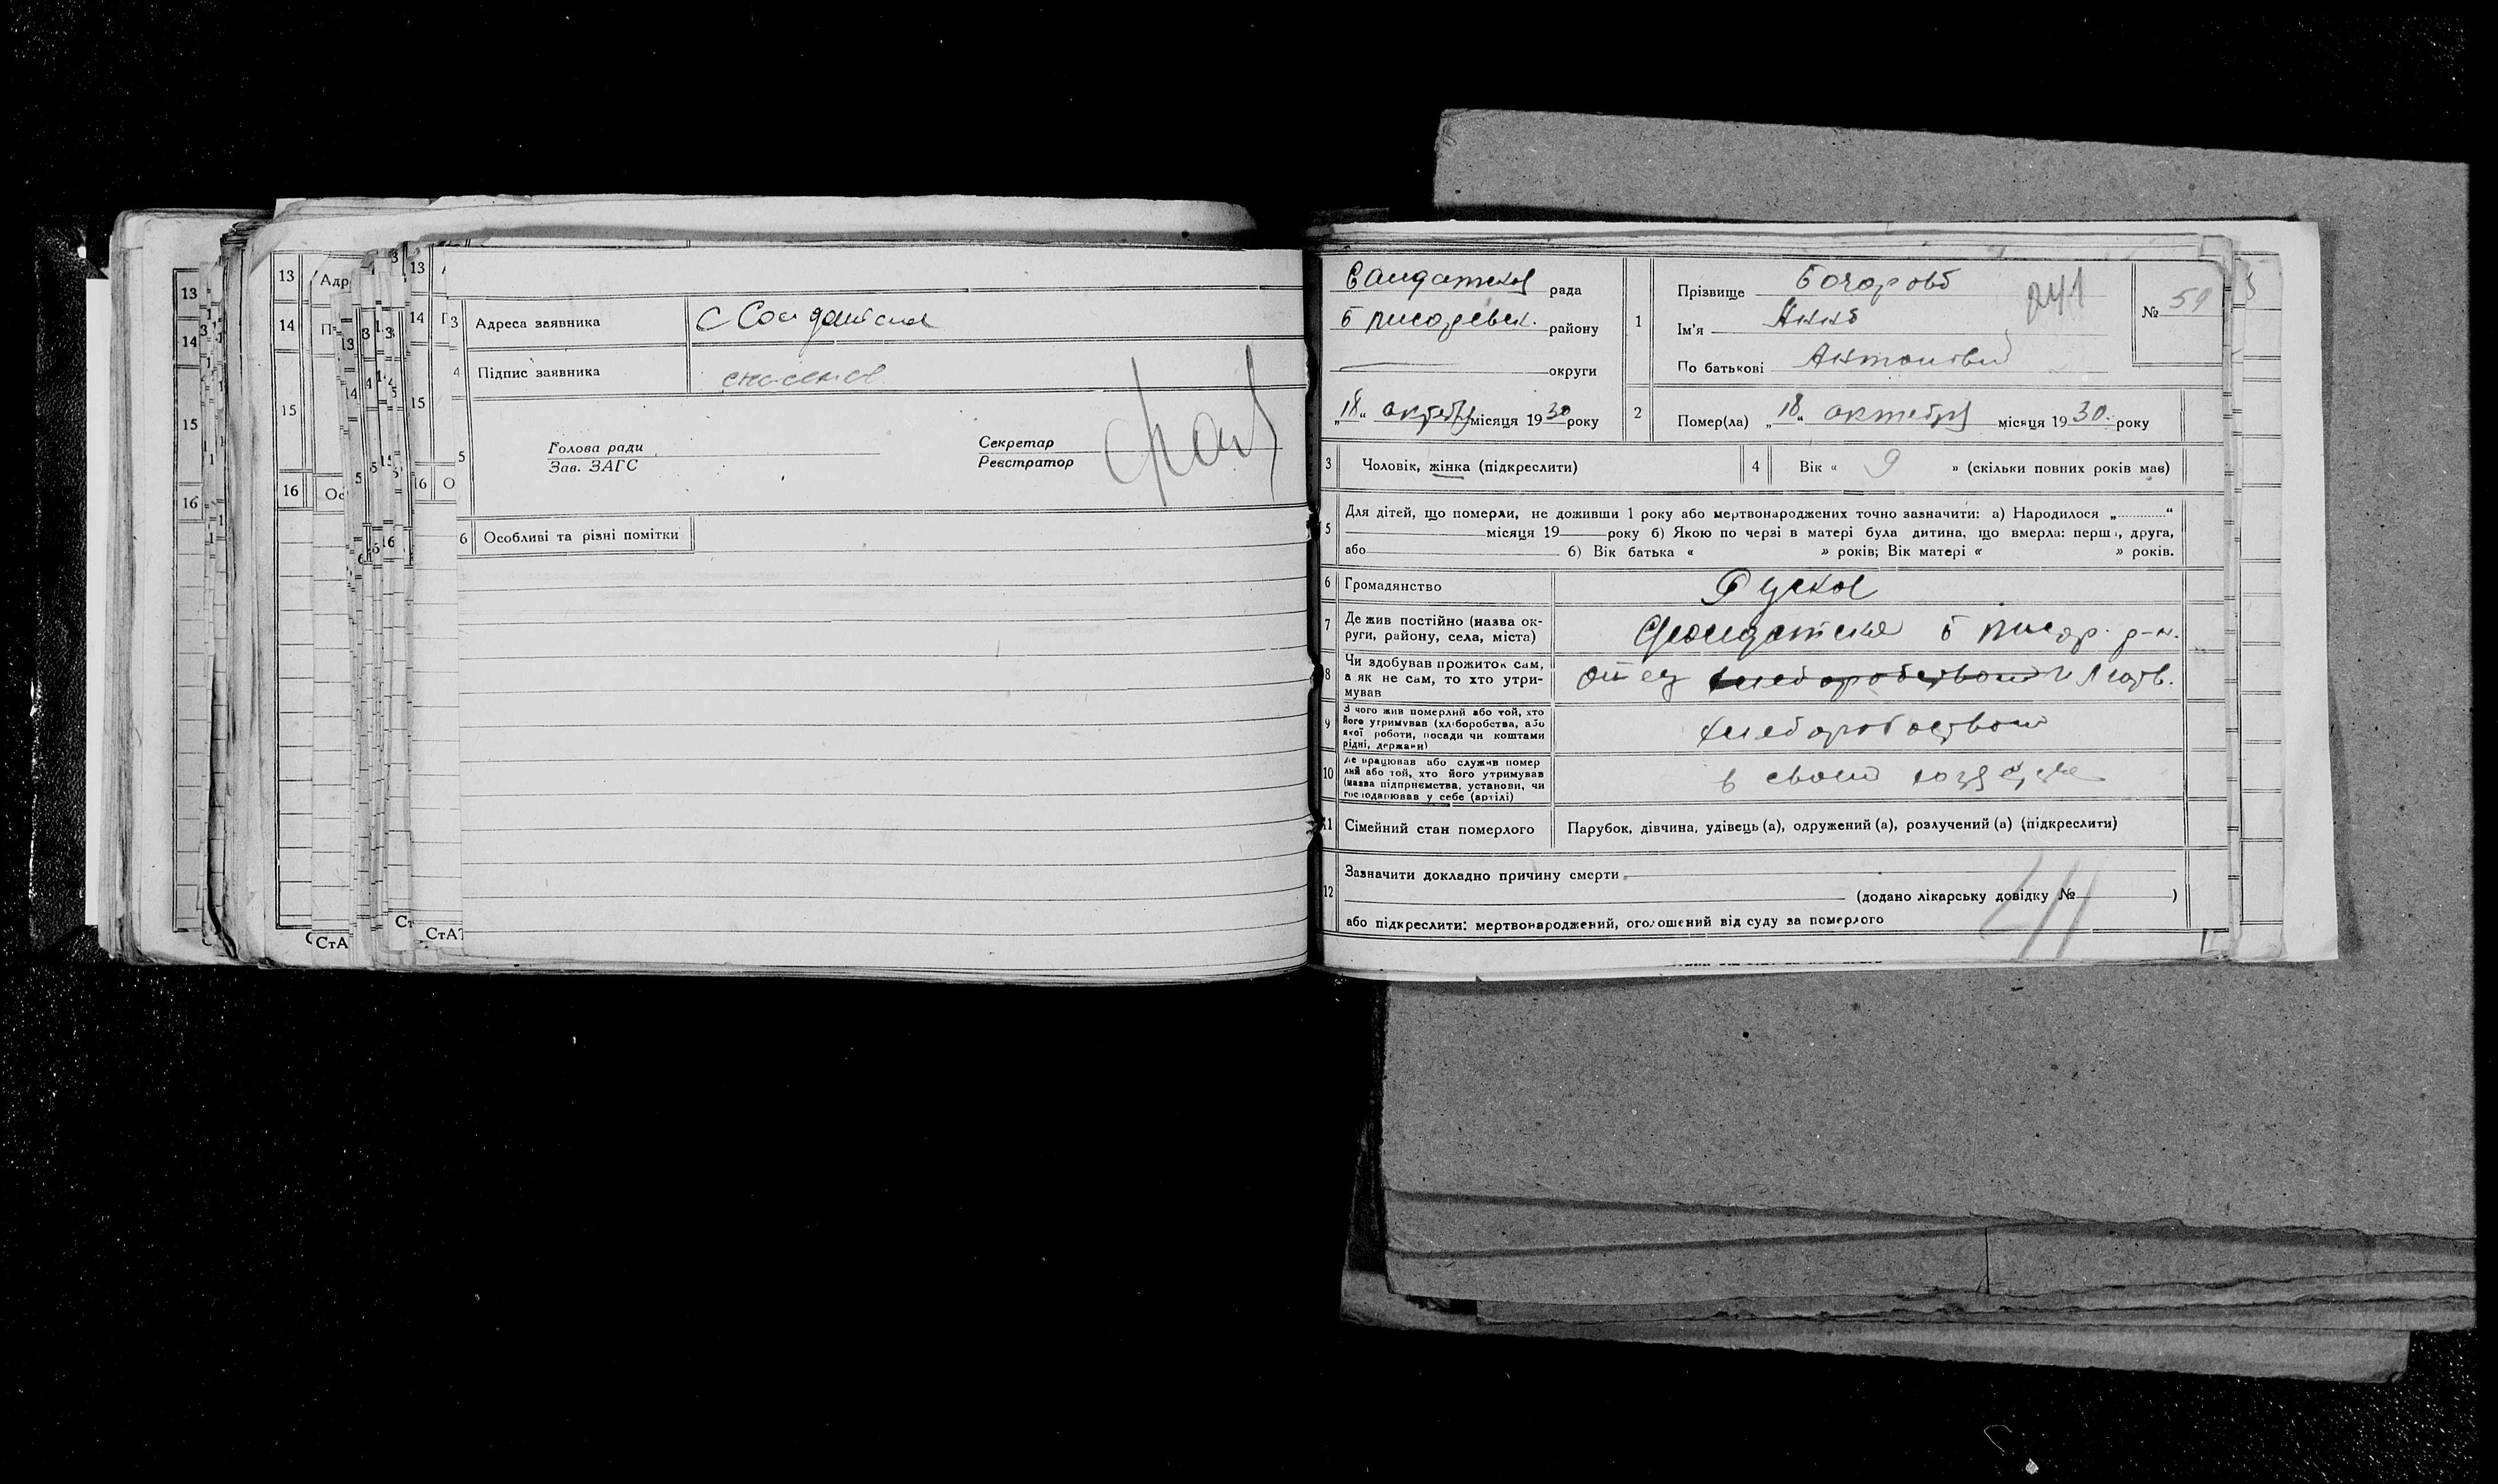 13
14
15
16
13
Адр
14
15
16
Ос
СтА
13
14
15
16
О
СтАТ
3 Адреса заявника
с Солдатское
4 Підпис заявника
5
Голова ради
Зав. ЗАГС
Секретар
Реєстратор
6 Особливі та різні помітки
Солдатская рада
Б писаревск. району
округи
„18“ октября місяця 1930 року
1
Прізвище Бочарова
Ім'я Анна
По батькові Антоновна
241
№ 59
2 Помер(ла) „18“ октября місяця 1930 року
3 Чоловік, жінка (підкреслити)
4 Вік « 9 » (скільки повних років має)
5 Для дітей, що померли, не доживши 1 року або мертвонароджених точно зазначити: а) Народилося „............“
місяця 19 року б) Якою по черзі в матері була дитина, що вмерла: перша, друга,
або б) Вік батька « » років; Вік матері « » років.
6 Громадянство Руская
7 Де жив постійно (назва ок-
руги, району, села, міста)
Солдатское Б писар. р-н.
8 Чи здобував прожиток сам,
а як не сам, то хто утри-
мував
отец
9 З чого жив померлий або той, хто
його утримував (хліборобства, або
якої роботи, посади чи коштами
рідні, держави)
хлеборобством
10 Де працював або служив помер
лий або той, хто його утримував
(назва підприємства, установи, чи
господарював у себе (артілі)
в своем
11 Сімейний стан померлого Парубок, дівчина, удівець (а), одружений (а), розлучений (а) (підкреслити)
12 Зазначити докладно причину смерти
(додано лікарську довідку № )
або підкреслити: мертвонароджений, оголошений від суду за померлого